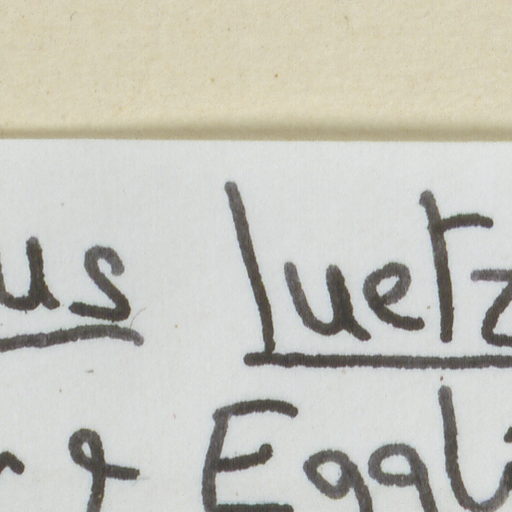 us luetz
r & Eggli